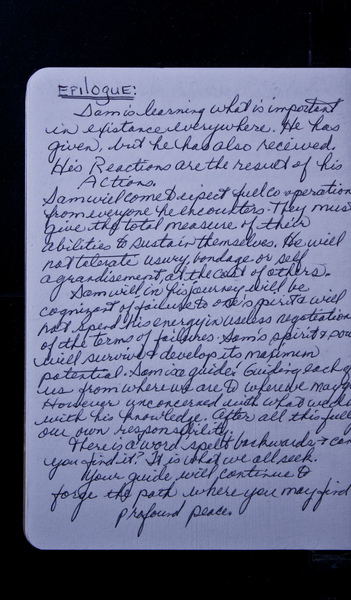 EPILOGUE:
Sam is learning what is important
in existance everywhere. He has
given, but he has also received.
His Reactions are the result of his
Actions.
Sam will come to expect full co-operation
from everyone he encounters. They must
give the total measure of their
abilities to sustain themselves. He will
not tolerate usury, bondage or self
agrandisement, at the cost of others.
Sam will in his journey will be
cognizant of failure to one's spirit & will
not spend his energy in useless negotiations
of the terms of failures. Sam's spirit &
will survive & develop its maximum
potential. Sam is a guide: Guiding each of
us from where we are to where we may
However unconcerned with what we do
with his knowledge. After all this
our own responsibility.
There is a word spelt backwards & can
you find it? It is what we all seek.
Your guide will continue to
forge the path where you may find
profound peace.